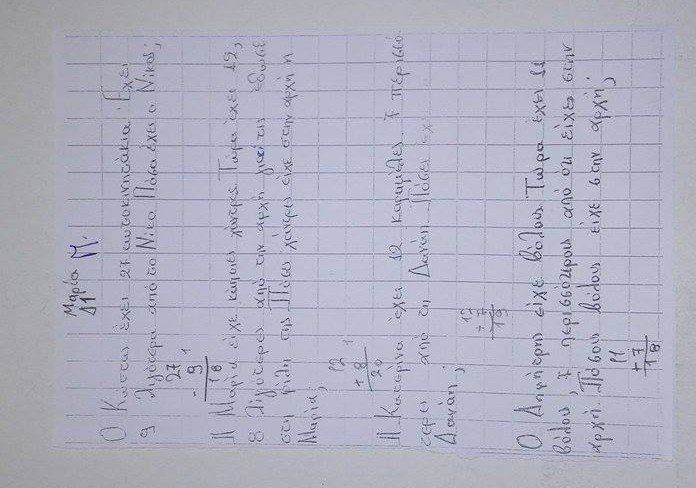 Μαρία Μ.
Δ1
Ο Κώστας έχει 27 αυτοκινητάκια. Έχει
9 λιγότερα από το Νίκο. Πόσα έχει ο Νίκος;
27 1
- 9
18
Η Μαρία είχε κάποιες χάντρες. Τώρα έχει 12,
8 λιγότερες από την αρχή γιατί τις έδωσε
στη φίλη της. Πόσες χάντρες είχε στην αρχή η
Μαρία;
12 1
+ 8
20
Η Κατερίνα έχει 12 καραμέλες. 7 περισσό
τερες από τη Δανάη. Πόσες έχ
Δανάη;
12
+ 7
19
Ο Δημήτρης είχε βόλους. Τώρα έχει 11
βόλους, 7 περισσότερους από ότι είχε στην
αρχή. Πόσους βόλους είχε στην αρχή;
11
+ 7
18